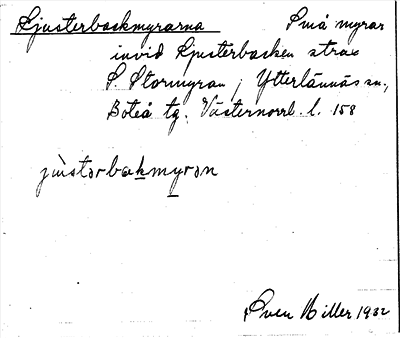 Ljusterbackmyrarna Små myrar
invid Ljusterbacken strax
S. Stormyran, Ytterlännäs sn,
Boteå tg. Västernorrl. l. 158
jùstərbakmyrən
Sven Hiller 1932